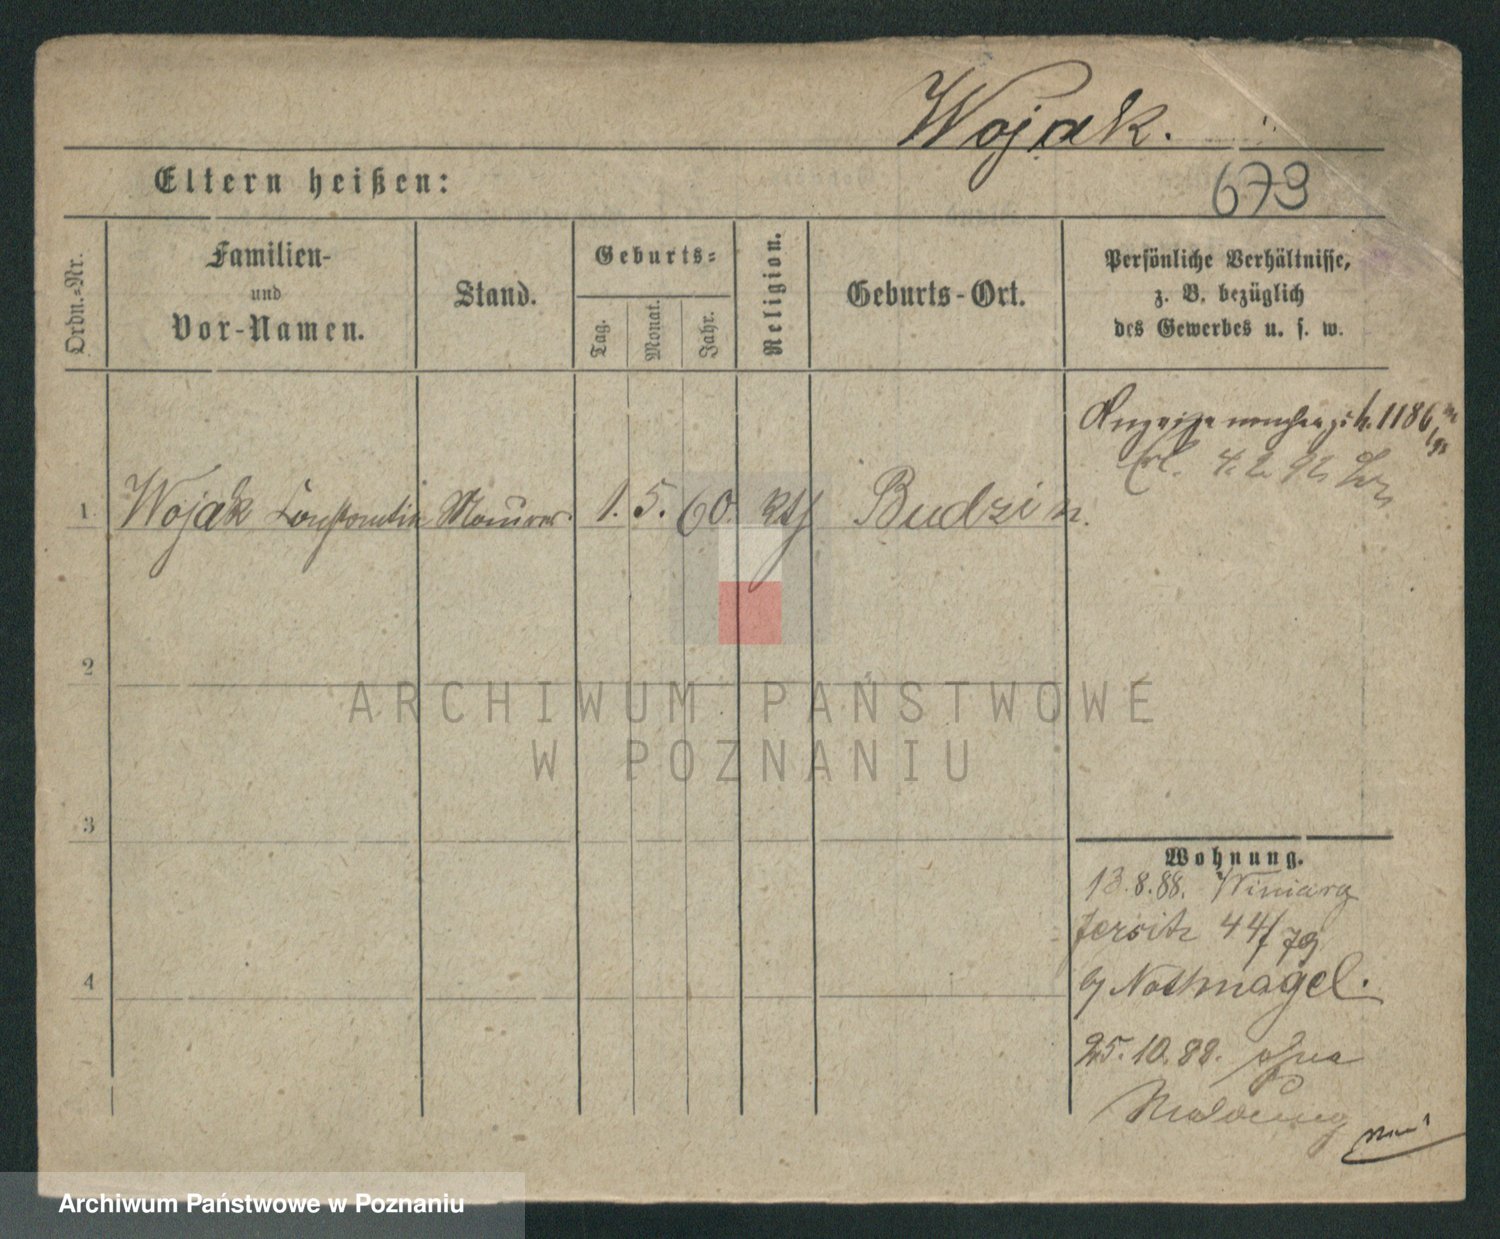 Wojak.
673
Eltern heißen:
Ordn.-Nr.
Familien-
und
Vor-Namen.
Stand.
Geburts-
Tag.
Monat.
Jahr.
Religion.
Geburts-Ort.
Persönliche Verhältnisse,
z. B. bezüglich
des Gewerbes u. s. w.
1 Wojak Constantin Maurer. 1. 5. 60. kth Budzin.
2
3
4
Wohnung.
13.8.88. Winiary
Jersitz 44/79
b/ Nothnagel.
25.10.88. ohne
Meldung
ARCHIWUM PAŃSTWOWE
W POZNANIU
Archiwum Państwowe w Poznaniu